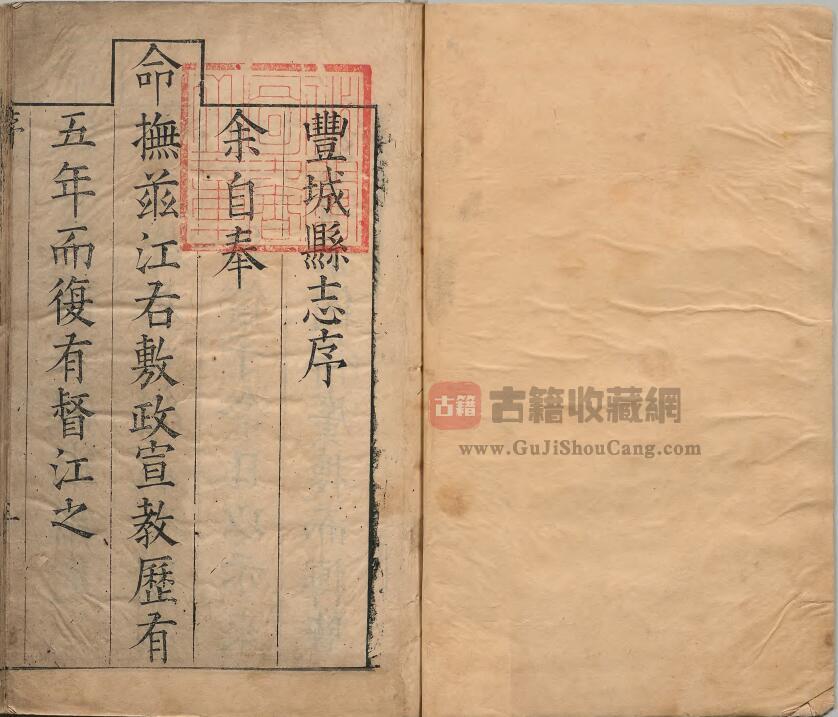 豐城縣志序
余自奉
命撫茲江右敷政宣教歷有
五年而復有督江之
序
古籍
古籍收藏網
www.GuJiShouCang.com